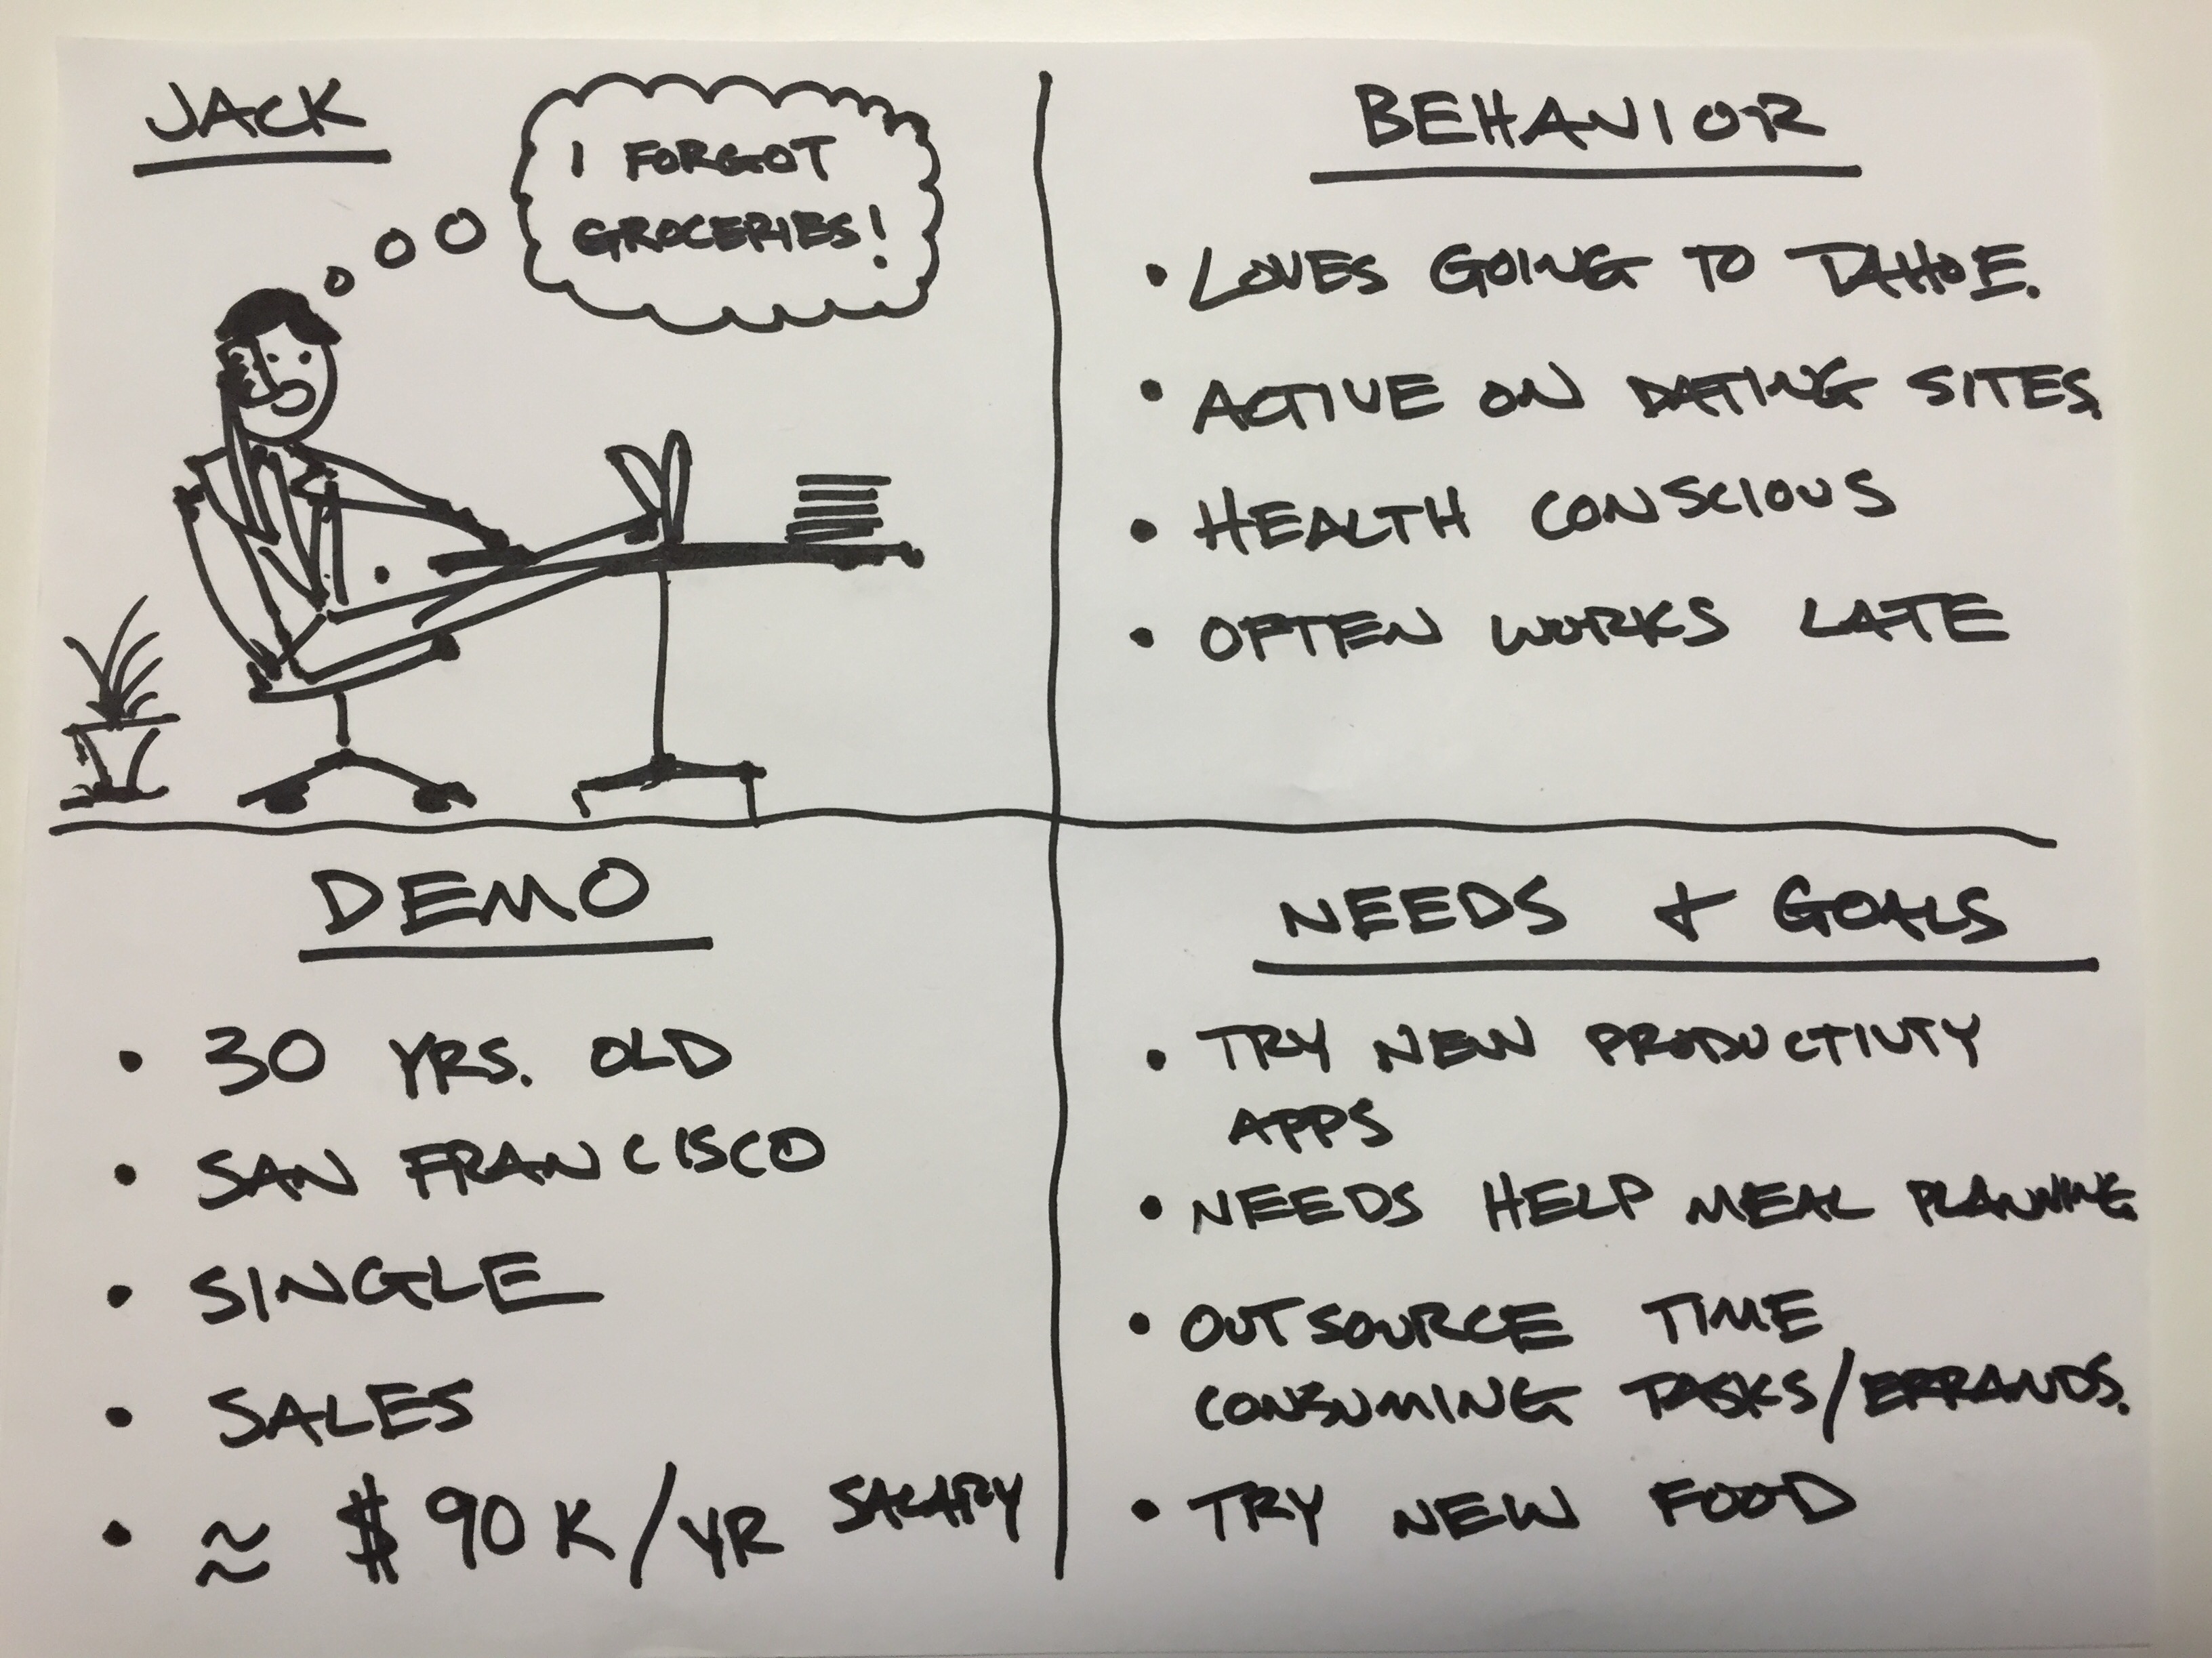 JACK
I FORGOT
GROCERIES!
BEHAVIOR
• LOVES GOING TO TAHOE.
• ACTIVE ON DATING SITES.
• HEALTH CONSCIOUS
• OFTEN WORKS LATE
DEMO
• 30 YRS. OLD
• SAN FRANCISCO
• SINGLE
• SALES
• ≈ $90K/YR SALARY
NEEDS + GOALS
• TRY NEW PRODUCTIVTY
APPS
• NEEDS HELP MEAL PLANNING.
• OUTSOURCE TIME
CONSUMING TASKS/ERRANDS.
• TRY NEW FOOD